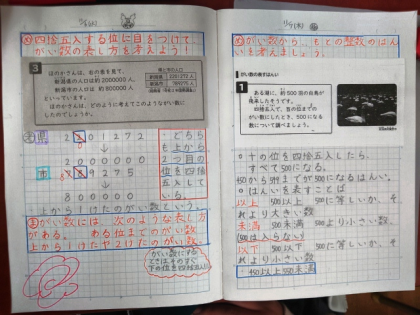 め四捨五入する位に目をつけて、
がい数の表し方を考えよう!
3
ほのかさんは、右の表を見て、
新潟県の人口は約 2000000人、
新潟市の人口は約 800000人
といっています。
ほのかさんは、どのように考えてこのようながい数に
したのでしょうか。
県と市の人口
新潟県
新潟市
県
2201272
↓
2000000
市
789275
↓
800000
どちら
も上から
2つ目の
位を四捨
五入して
いる。
上から1けたのがい数という。
まがい数には、次のような表し方
がある。ある位までのがい数
上から1けたや2けたのがい数
がい数にする
ときはそのすぐ
下の位を四捨五入
めがい数から、もとの整数のはん
いを考えましょう。
がい数の表すはんい
1
ある湖に、約500羽の白鳥が
飛来したそうです。
四捨五入して、百の位までの
がい数にしたとき、500になる
数について調べましょう。
○十の位を四捨五入したら、
すべて500になる。
○はんいを表すことば
以上 500以上 500に等しいか、そ
れより大きい数
未満 500未満 500より小さい数。
(500は入らない)
以下 500以下 500に等しいか、そ
れより小さい数
450以上550未満